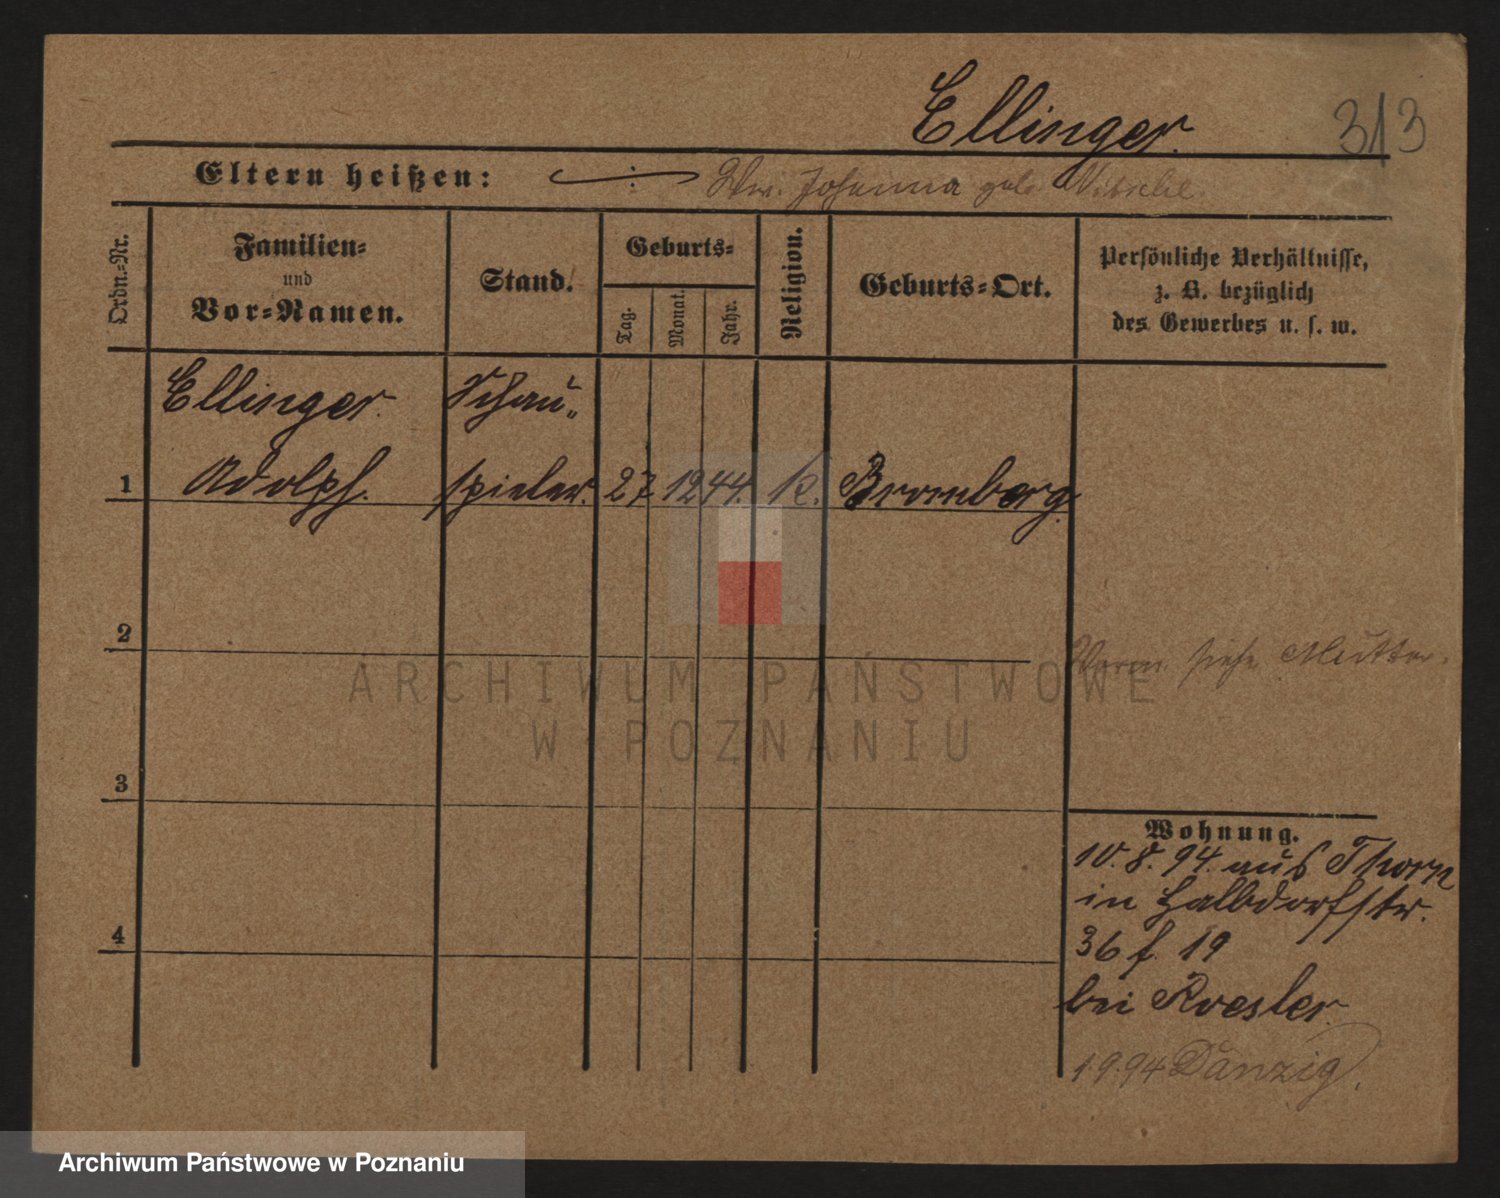 Ellinger.
313
Eltern heißen: Ww. Johanna geb. Nitschel
Ordn.-Nr.
Familien-
und
Vor-Namen.
Stand.
Geburts-
Tag.
Monat.
Jahr.
Religion.
Geburts-Ort.
Persönliche Verhältnisse,
z. B. bezüglich
des Gewerbes u. s. w.
Ellinger Schau-
1 Adolph. spieler. 27 12 44. k. Bromberg
2
Verm. siehe Mutter.
3
4
Wohnung.
10.8.94. aus Thorn
in Halbdorfstr.
36 f. 19
bei Roesler
1 9.94 Danzig.
ARCHIWUM PAŃSTWOWE
W POZNANIU
Archiwum Państwowe w Poznaniu